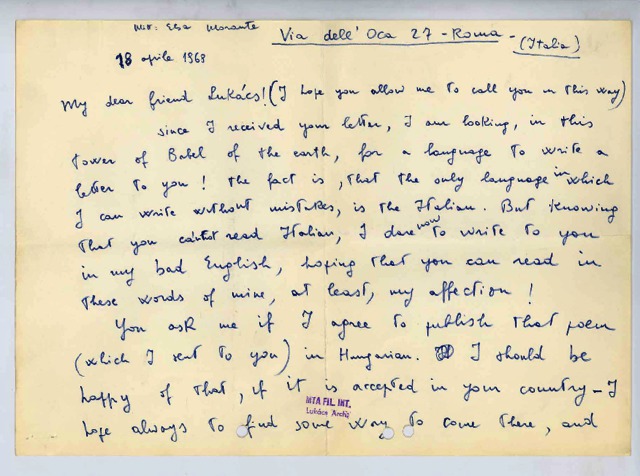 Mitt: Elsa Morante Via dell'Oca 27 - Roma - (Italia)
18 aprile 1968
My dear friend Lukács! (I hope you allow me to call you in this way)
since I received your letter, I am looking, in this
tower of Babel of the earth, for a language to write a
letter to you! The fact is, that the only language in which
I can write without mistakes, is the Italian. But knowing
that you cannot read Italian, I dare now to write to you
in my bad English, hoping that you can read in
these words of mine, at least, my affection!
You ask me if I agree to publish that poem
(which I sent to you) in Hungarian. I should be
happy of that, if it is accepted in your country - I
hope always to find some way to come there, and
MTA FIL. INT.
Lukács Arch.